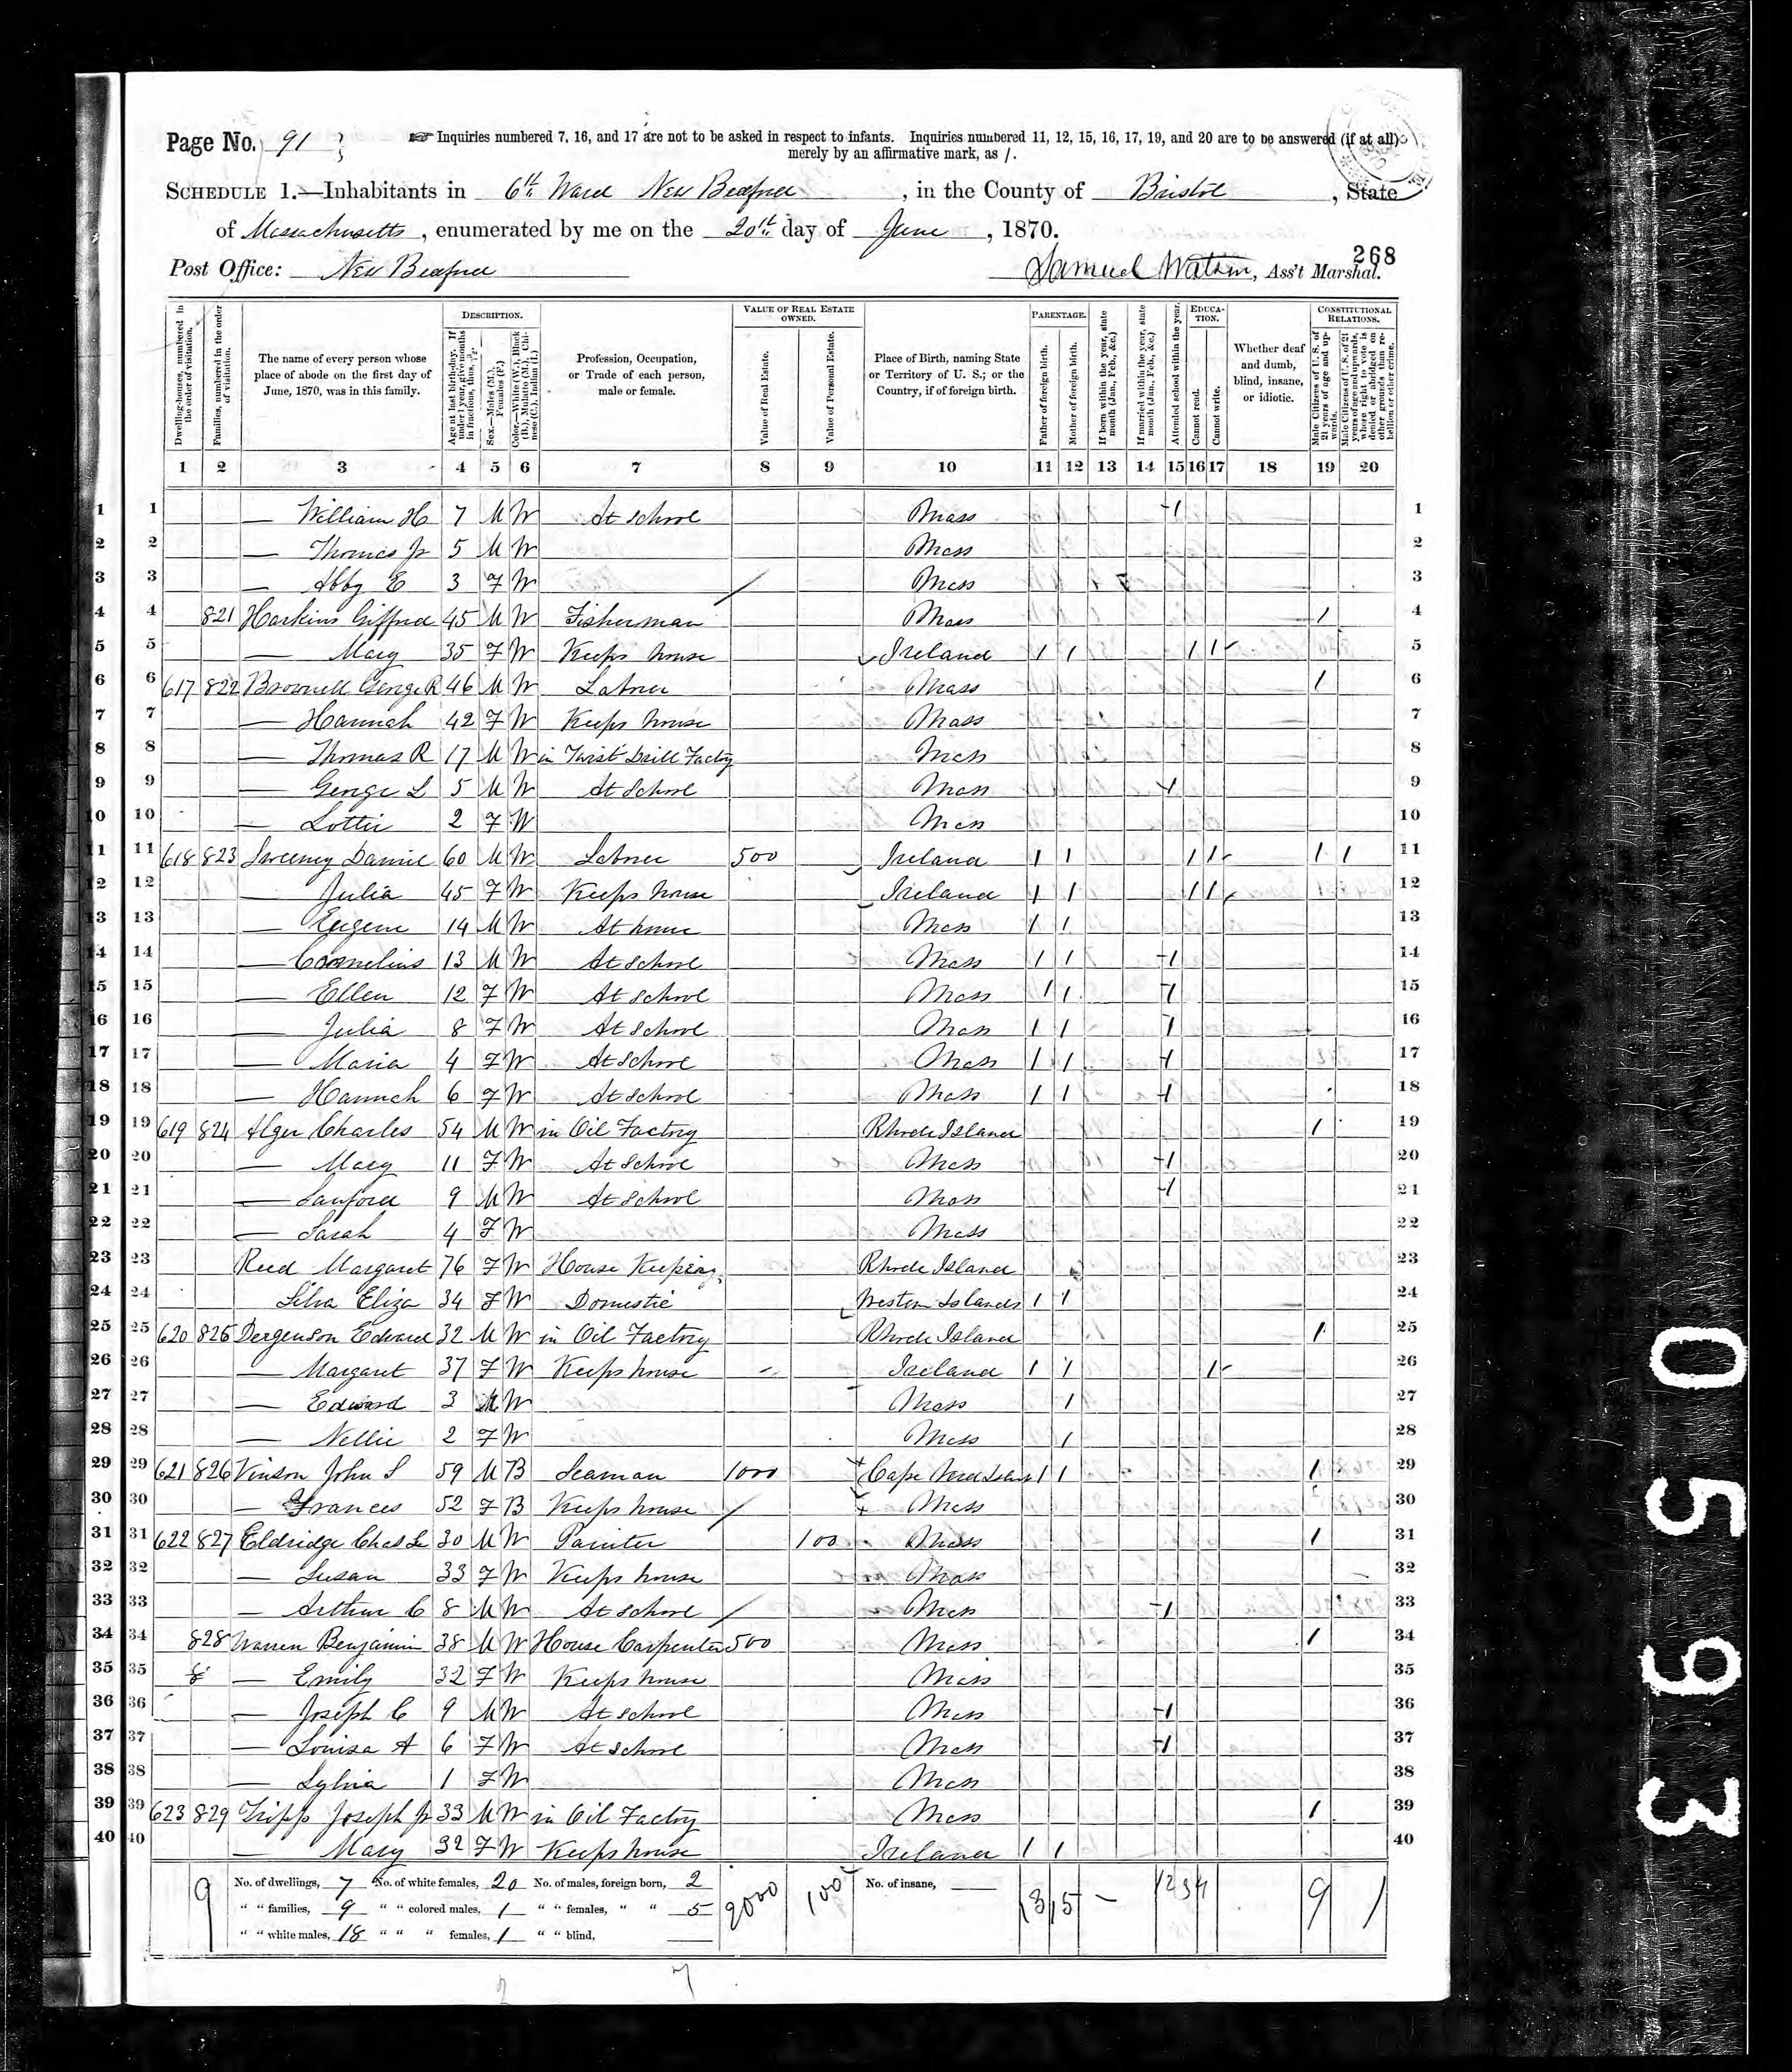 Page No. 91
☞ Inquiries numbered 7, 16, and 17 are not to be asked in respect to infants. Inquiries numbered 11, 12, 15, 16, 17, 19, and 20 are to be answered (if at all)
merely by an affirmative mark, as /.
SCHEDULE 1.—Inhabitants in 6th Ward New Bedford, in the County of Bristol, State
of Massachusetts, enumerated by me on the 20th day of June, 1870.
268
Post Office: New Bedford Samuel Watson, Ass't Marshal.
Dwelling-houses, numbered in the order of visitation.
Families, numbered in the order of visitation.
The name of every person whose place of abode on the first day of June, 1870, was in this family.
DESCRIPTION.
Age at last birth-day. If under 1 year, give months in fractions, thus, 3/12.
Sex.—Males (M.), Females (F.)
Color.—White (W.), Black (B.), Mulatto (M.), Chinese (C.), Indian (I.)
Profession, Occupation, or Trade of each person, male or female.
VALUE OF REAL ESTATE OWNED.
Value of Real Estate.
Value of Personal Estate.
Place of Birth, naming State or Territory of U. S.; or the Country, if of foreign birth.
PARENTAGE.
Father of foreign birth.
Mother of foreign birth.
If born within the year, state month (Jan., Feb., &c.)
If married within the year, state month (Jan., Feb., &c.)
Attended school within the year.
EDUCATION.
Cannot read.
Cannot write.
Whether deaf and dumb, blind, insane, or idiotic.
CONSTITUTIONAL RELATIONS.
Male Citizens of U. S. of 21 years of age and upwards.
Male Citizens of U. S. of 21 years of age and upwards, where right to vote is denied or abridged on other grounds than rebellion or other crime.
1 2 3 4 5 6 7 8 9 10 11 12 13 14 15 16 17 18 19 20
1 1 — William H 7 M W At School Mass 1 1
2 2 — Thomas Jr 5 M W Mass 2
3 3 — Abby E 3 F W Mass 3
4 4 821 Harkins Gifford 45 M W Fisherman Mass 1 4
5 5 — Mary 35 F W Keeps house Ireland 1 1 1 1 5
6 6 617 822 Brownell George R 46 M W Laborer Mass 1 6
7 7 — Hannah 42 F W Keeps house Mass 7
8 8 — Thomas R 17 M W in Twist Drill Factory Mass 8
9 9 — George L 5 M W At School Mass 1 9
10 10 — Lottie 2 F W Mass 10
11 11 618 823 Sweeney Daniel 60 M W Laborer 500 Ireland 1 1 1 1 1 1 11
12 12 — Julia 45 F W Keeps house Ireland 1 1 1 1 12
13 13 — Eugene 14 M W At home Mass 1 1 13
14 14 — Cornelius 13 M W At School Mass 1 1 1 14
15 15 — Ellen 12 F W At School Mass 1 1 1 15
16 16 — Julia 8 F W At School Mass 1 1 1 16
17 17 — Maria 4 F W At School Mass 1 1 1 17
18 18 — Hannah 6 F W At School Mass 1 1 1 18
19 19 619 824 Alger Charles 54 M W in Oil Factory Rhode Island 1 19
20 20 — Mary 11 F W At School Mass 1 20
21 21 — Sanford 9 M W At School Mass 1 21
22 22 — Sarah 4 F W Mass 22
23 23 Reed Margaret 76 F W House Keeping Rhode Island 23
24 24 Silva Eliza 34 F W Domestic Western Islands 1 1 24
25 25 620 825 Dergenson Edward 32 M W in Oil Factory Rhode Island 1 25
26 26 — Margaret 37 F W Keeps house Ireland 1 1 1 26
27 27 — Edward 3 M W Mass 1 27
28 28 — Nellie 2 F W Mass 1 28
29 29 621 826 Vinson John S 59 M B Seaman 1000 Cape Verd Islands 1 1 1 29
30 30 — Frances 52 F B Keeps house Mass 30
31 31 622 827 Eldridge Chas L 30 M W Painter 100 Mass 1 31
32 32 — Susan 33 F W Keeps house Mass 32
33 33 — Arthur C 8 M W At School Mass 1 33
34 34 828 Warren Benjamin 38 M W House Carpenter 500 Mass 1 34
35 35 — Emily 32 F W Keeps house Mass 35
36 36 — Joseph C 9 M W At School Mass 1 36
37 37 — Louisa A 6 F W At School Mass 1 37
38 38 — Sylvia 1 F W Mass 38
39 39 623 829 Tripp Joseph Jr 33 M W in Oil Factory Mass 1 39
40 40 — Mary 32 F W Keeps house Ireland 1 1 40
9 No. of dwellings, 7 No. of white females, 20 No. of males, foreign born, 2 2000 100 No. of insane, — 13 15 — 9 1
" " families, 9 " " colored males, 1 " " females, " " 5
" " white males, 18 " " " females, 1 " " blind,
7
0593